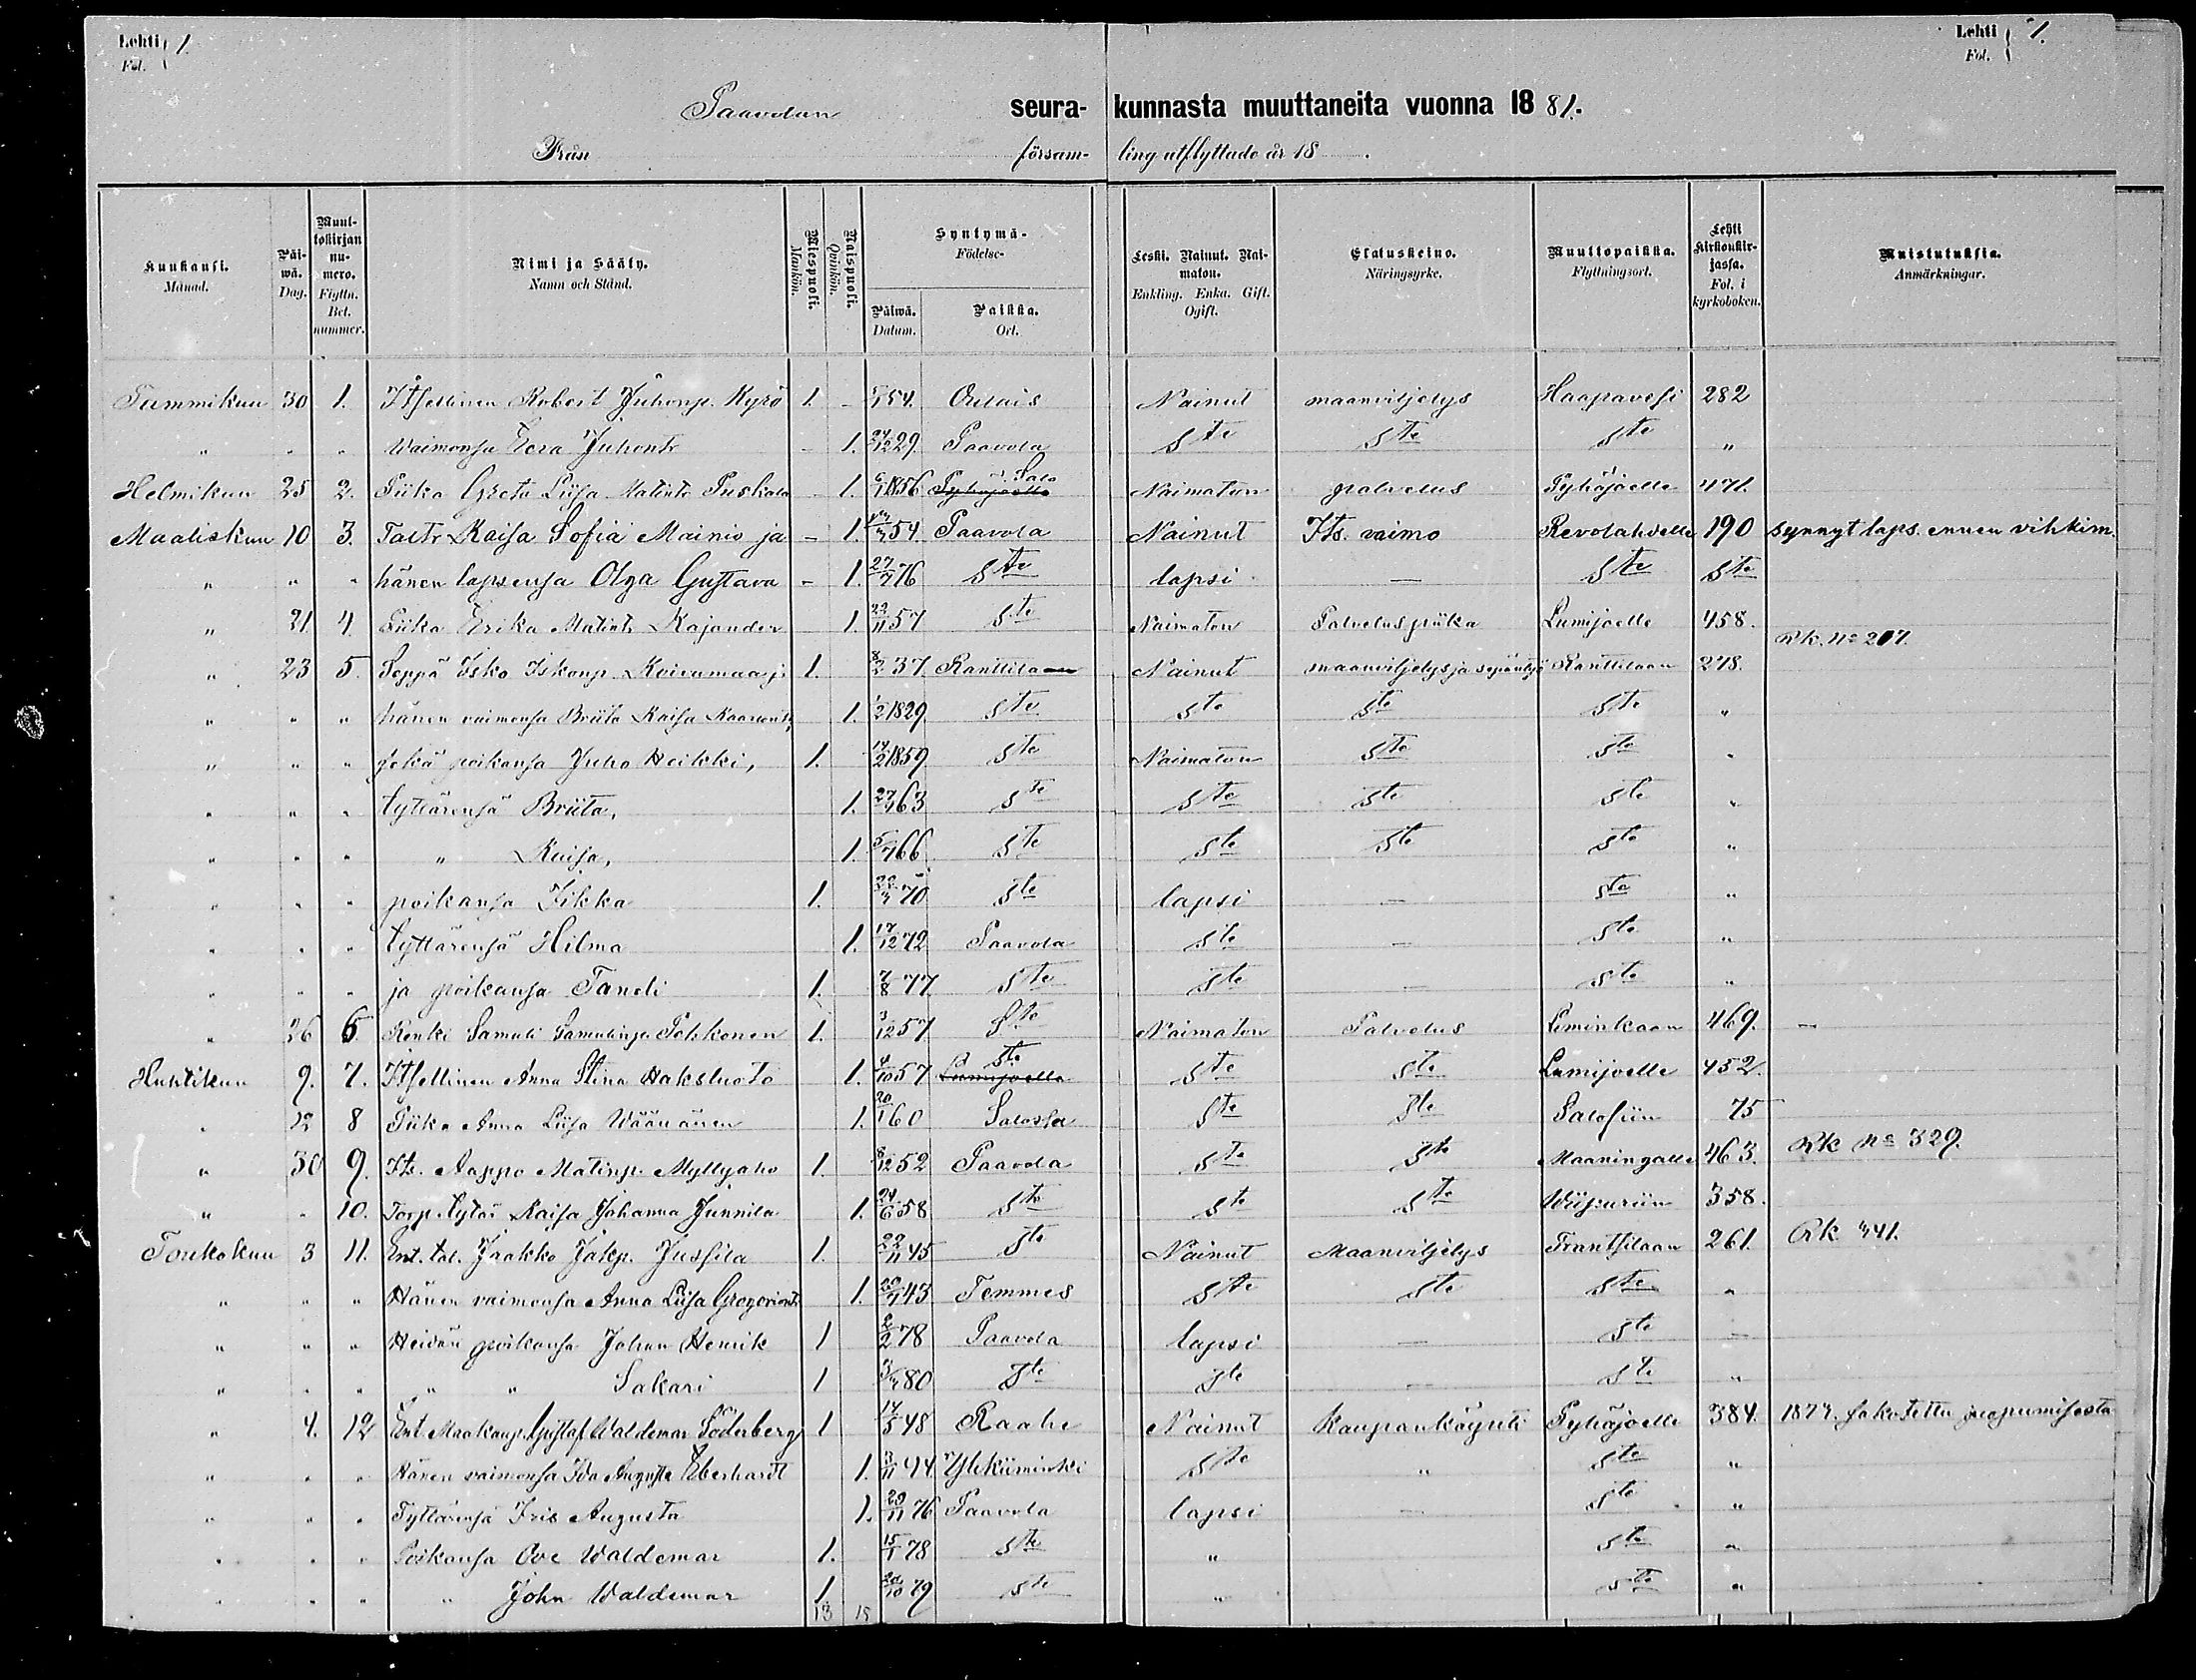 Lehti 1. Lehti 1.
Fol. Fol.
Paavolan seura- kunnasta muuttaneita vuonna 18 81.
Från försam- ling utflyttade år 18 .
Kuukausi. Månad. Päi-wä. Dag. Muut-tokirjan nu-mero. Flyttn. Bet. nummer. Nimi ja Sääty. Namn och Stånd. Miespuoli. Mankön. Naispuoli. Qvinkön. Syntymä- Födelse- Päiwä. Datum. Paikka. Ort. Leski. Nainut. Nai-maton. Enkling. Enka. Gift. Ogift. Elatuskeino. Näringsyrke. Muuttopaikka. Flyttningsort. Lehti kirkonkir-jassa. Fol. i kyrkoboken. Muistutuksia. Anmärkningar.
Tammikuu 30 1. Itsellinen Robert Juhonp. Kyrö 1. - 54. Oulais Nainut maanviljelys Haapavesi 282
" " " Waimonsa Eeva Juhontr - 1. 24/12 29. Paavola Ste Ste Ste "
Helmikuu 25 2. Piika Greta Liisa Matintr Puskala - 1. 6/1 1856 Pyhäjoella Salo Naimaton palvelus Pyhäjoelle 471.
Maaliskuu 10 3. Taltr Kaisa Sofia Mainio ja - 1. 54 Paavola Nainut Its. vaimo Revolahdelle 190 synnyt laps. ennen vihkim.
" " " hänen lapsensa Olga Gustava - 1. 27/7 76 Ste lapsi — Ste Ste
" 21 4. Piika Erika Matintr Kajander 1. 22/11 57 Ste Naimaton Palveluspiika Lumijoelle 458.
" 23 5. Seppä Isko Iskonp. Koivumaa j. 1. 8/2 37 Ranttilaan Nainut maanviljelys ja sepäntyö Ranttilaan 278. Rk. No 207.
" " " hänen vaimonsa Briita Kaisa Kaarlentr, 1. 1/2 1829 Ste Ste Ste Ste "
" " " sekä poikansa Juho Heikki, 1. 14/2 1859 Ste Naimaton Ste Ste "
" " " tyttärensä Briita, 1. 27/4 63 Ste Ste Ste Ste "
" " " " Kaisa, 1. 5/7 66 Ste Ste Ste Ste "
" " " poikansa Iikka 1. 70 Ste lapsi — Ste "
" " " tyttärensä Hilma 1. 17/12 72 Paavola Ste — Ste "
" " " ja poikansa Taneli 1. 7/8 77 Ste Ste — Ste "
" 26 6. Renki Samuli Samulinp. Pohkonen 1. 3/12 57 Ste Naimaton Palvelus Liminkaan 469. —
Huhtikuu 9. 7. Itsellinen Anna Stina Haksluoto 1. 4/10 57 Lumijoella Ste Ste Ste Lumijoelle 452.
" 12 8 Piika Anna Liisa Wäänänen 1. 20/1 60 Salossa Ste Ste Saloisiin 75
" 30 9. Its. Aappo Matinp. Myllyaho 1. 8/12 52 Paavola Ste Ste Maaningalle 463. Rk No 329.
" " 10. Torp. tytär Kaisa Johanna Junnila 1. 24/6 58 Ste Ste Ste Wiipuriin 358.
Toukokuu 3 11. Ent. tal. Jaakko Jakp. Jussila 1. 22/11 45 Ste Nainut Maanviljelys Frantsilaan 261. Rk 341.
" " " Hänen vaimonsa Anna Liisa Gregoriontr 1. 43 Temmes Ste Ste Ste "
" " " Heidän poikansa Johan Henrik 1 2/2 78 Paavola lapsi — Ste —
" " " " " Sakari 1 80 Ste Ste — Ste "
" 4. 12 Ent. Maakaup. Gustaf Waldemar Söderberg 1 17/5 48 Raahe Nainut Kaupankäynti Pyhäjoelle 384. 1877. sakotettu juopumisesta
" " " Hänen vaimonsa Ida Augusta Eberhardt 1. 3/11 44 Ylikiiminki Ste " Ste "
" " " Tyttärensä Iris Augusta 1. 29/11 76 Paavola lapsi — Ste "
" " " Poikansa Ove Waldemar 1. 15/1 78 Ste " Ste "
" " " " John Waldemar 1 79 Ste " Ste "
13 15